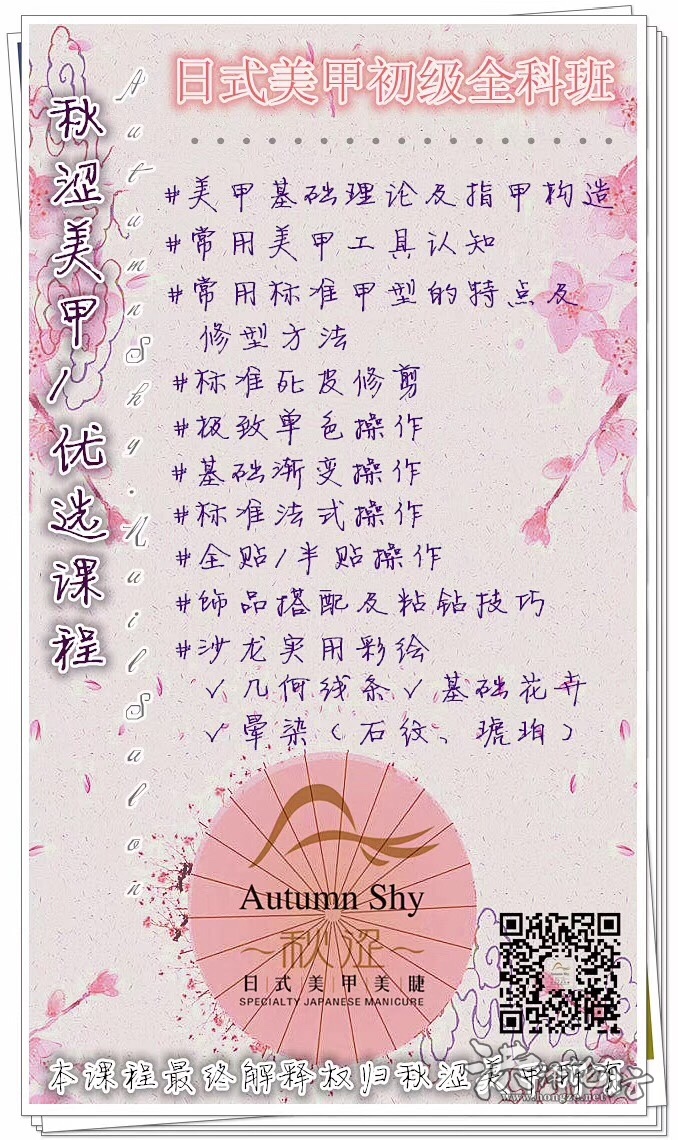 日式美甲初级全科班
秋涩美甲/优选课程
Autumn Shy·Nail Salon
#美甲基础理论及指甲构造
#常用美甲工具认知
#常用标准甲型的特点及
修型方法
#标准死皮修剪
#极致单色操作
#基础渐变操作
#标准法式操作
#全贴/半贴操作
#饰品搭配及粘钻技巧
#沙龙实用彩绘
√几何线条√基础花卉
√晕染(石纹、琥珀)
Autumn Shy
~秋涩~
日|式|美|甲|美|睫
SPECIALTY JAPANESE MANICURE
本课程最终解释权归秋涩美甲所有
www.hongze.net